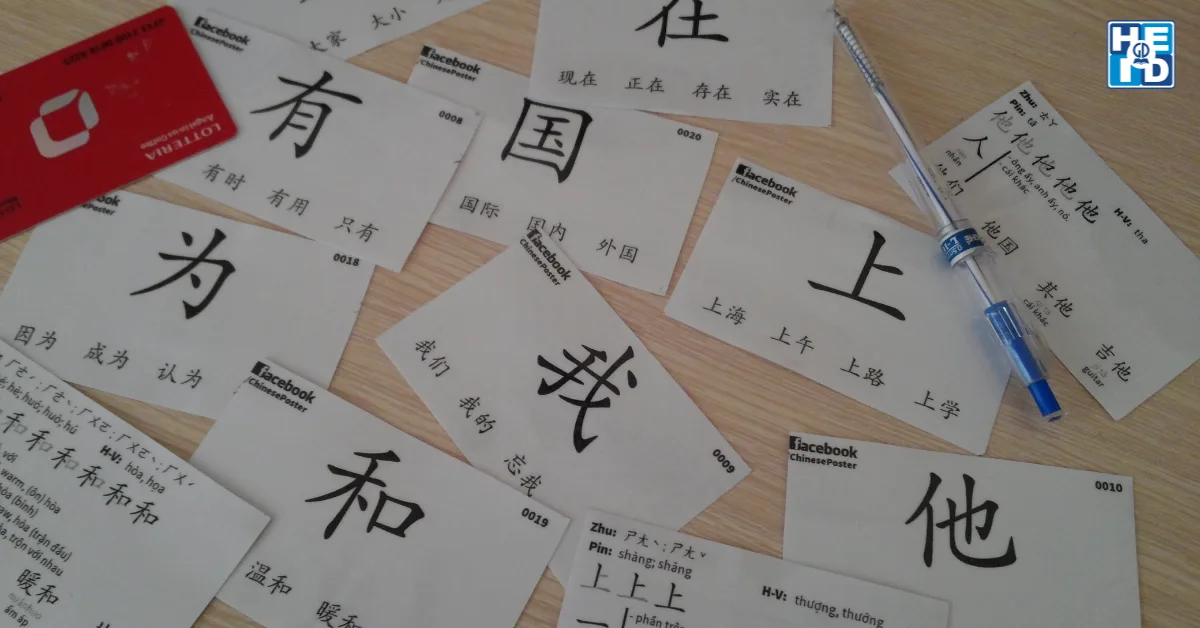 HEID
大小
大家
在
现在 正在 存在 实在
LOTTERIA
Angel-in-us Coffee
facebook
/ChinesePoster
有
0008
有时 有用 只有
facebook
/ChinesePoster
国
0020
国际 国内 外国
facebook
/ChinesePoster
上
上海 上午 上路 上学
Zhu: ㄊㄚ
Pin: tā
他他他他他
人
- ông ấy, anh ấy, nó.
- cái khác
H-V: tha
nhân
他们
他国
其他
cái khác
吉他
guitar
为
0018
因为 成为 认为
facebook
/ChinesePoster
我
0009
我们 我的 忘我
facebook
/ChinesePoster
和
0019
温和 暖和
H-V: hòa, họa
和和和和和和
暖和
ấm áp
Zhu: ㄕㄤˋ; ㄕㄤˇ
Pin: shàng; shǎng
上上上
H-V: thượng, thướng
facebook
/ChinesePoster
他
0010